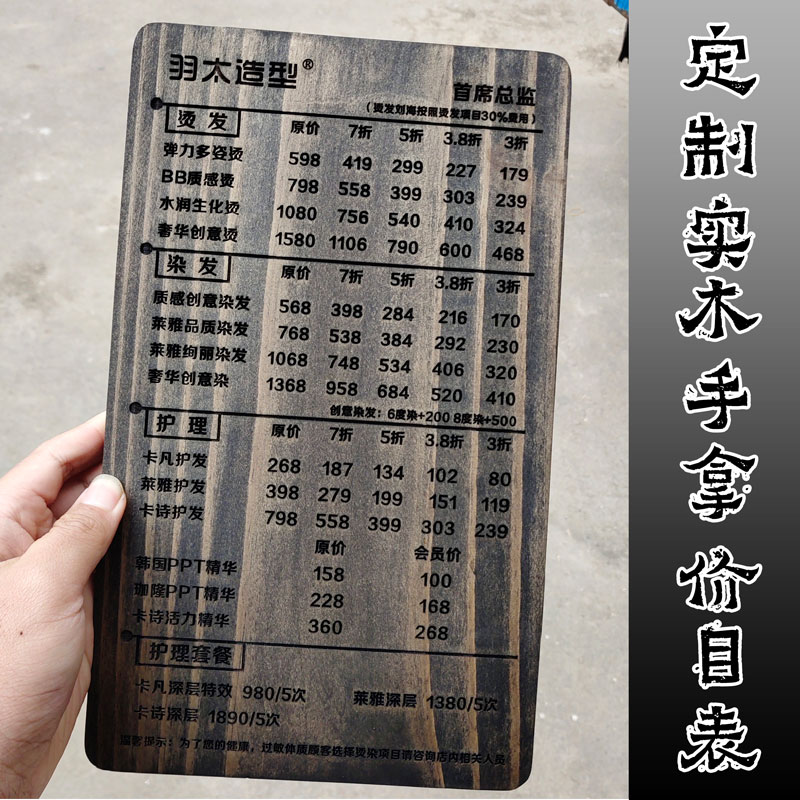 羽木造型®
首席总监
(烫发刘海按照烫发项目30%费用)
烫发 原价 7折 5折 3.8折 3折
弹力多姿烫 598 419 299 227 179
BB质感烫 798 558 399 303 239
水润生化烫 1080 756 540 410 324
奢华创意烫 1580 1106 790 600 468
染发 原价 7折 5折 3.8折 3折
质感创意染发 568 398 284 216 170
莱雅品质染发 768 538 384 292 230
莱雅绚丽染发 1068 748 534 406 320
奢华创意染 1368 958 684 520 410
创意染发：6度染+200 8度染+500
护理 原价 7折 5折 3.8折 3折
卡凡护发 268 187 134 102 80
莱雅护发 398 279 199 151 119
卡诗护发 798 558 399 303 239
原价 会员价
韩国PPT精华 158 100
珈隆PPT精华 228 168
卡诗活力精华 360 268
护理套餐
卡凡深层特效 980/5次 莱雅深层 1380/5次
卡诗深层 1890/5次
温馨提示：为了您的健康，过敏体质顾客选择烫染项目请咨询店内相关人员
定制实木手拿价目表